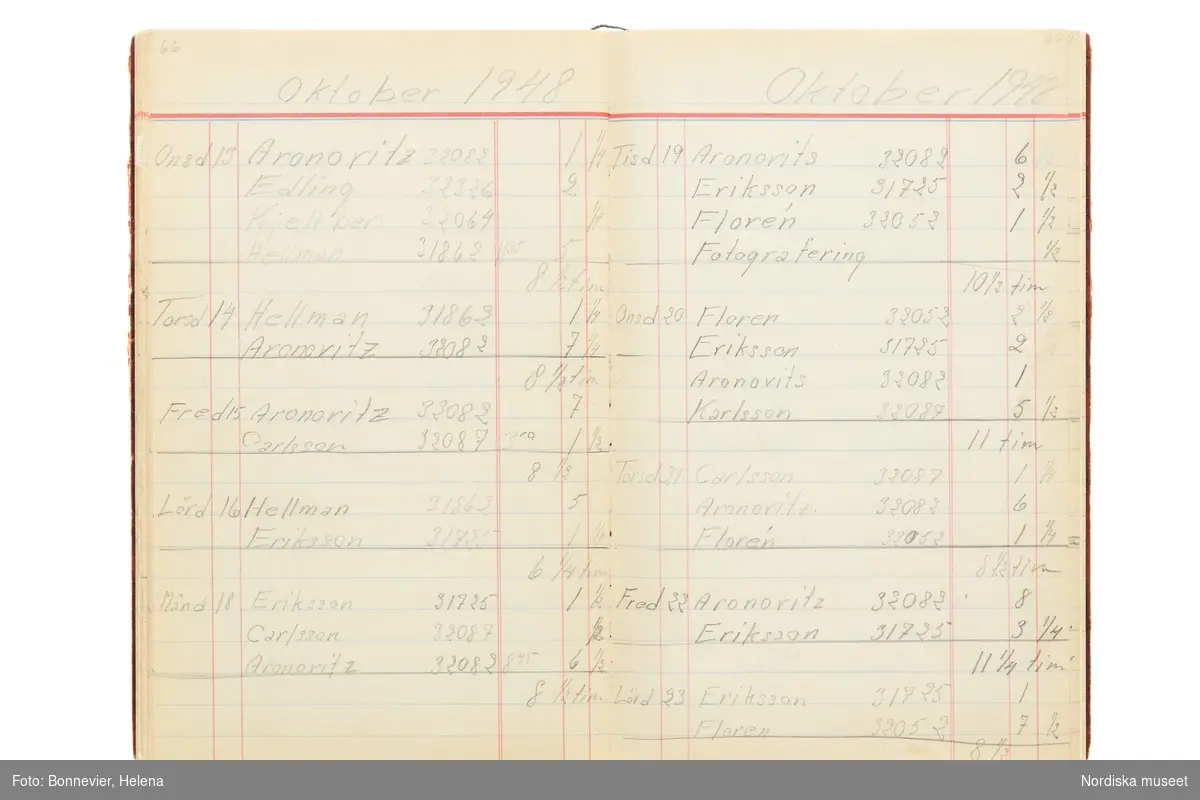 66
Oktober 1948
Onsd 13 Aronoritz 32082 1 1/4
Edling 32326 2
Kjellber 32064 1/4
Hellman 31862 5
8 1/2 tim
Torsd 14 Hellman 31862 1 1/4
Aronoritz 32082 7 1/4
8 1/2 tim
Fred 15 Aronoritz 32082 7
Carlsson 32087 1 1/2
8 1/2
Lörd 16 Hellman 31862 5
Eriksson 31725 1 1/4
6 1/4 tim
Månd 18 Eriksson 31725 1 1/2
Carlsson 32087 1/2
Aronoritz 32082 845 6 1/2
8 1/2 tim
Oktober 1948
Tisd 19 Aronovits 32082 6
Eriksson 31725 2 1/2
Florén 32052 1 1/2
Fotografering 1/2
10 1/2 tim
Onsd 20 Floren 32052 2 1/2
Eriksson 31725 2
Aronovits 32082 1
Karlsson 32087 5 1/2
11 tim
Torsd 21 Carlsson 32087 1 1/4
Aronoritz 32082 6
Florén 32052 1 1/4
8 1/2 tim
Fred 22 Aronoritz 32082 8
Eriksson 31725 3 1/4
11 1/4 tim
Lörd 23 Eriksson 31725 1
Floren 32052 7 1/2
8 1/2
Foto: Bonnevier, Helena
Nordiska museet